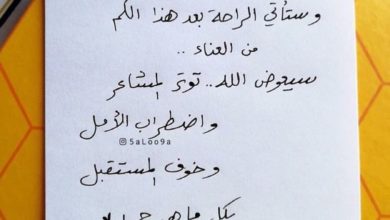 وستأتي الراحة بعد هذا الكم
من العناء ..
سيعوض الله.. توتر المشاعر
واضطراب الأمل
5aLoo9a
وخوف المستقبل
بكل ما هو